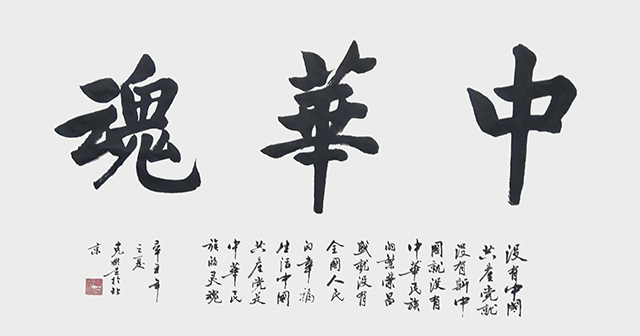 中華魂
没有中國
共產党就
没有新中
國就没有
中華民族
的繁榮昌
盛就没有
全國人民
的幸福
生活中國
共產党是
中華民
族的灵魂
辛丑年
之夏
克書於北
京